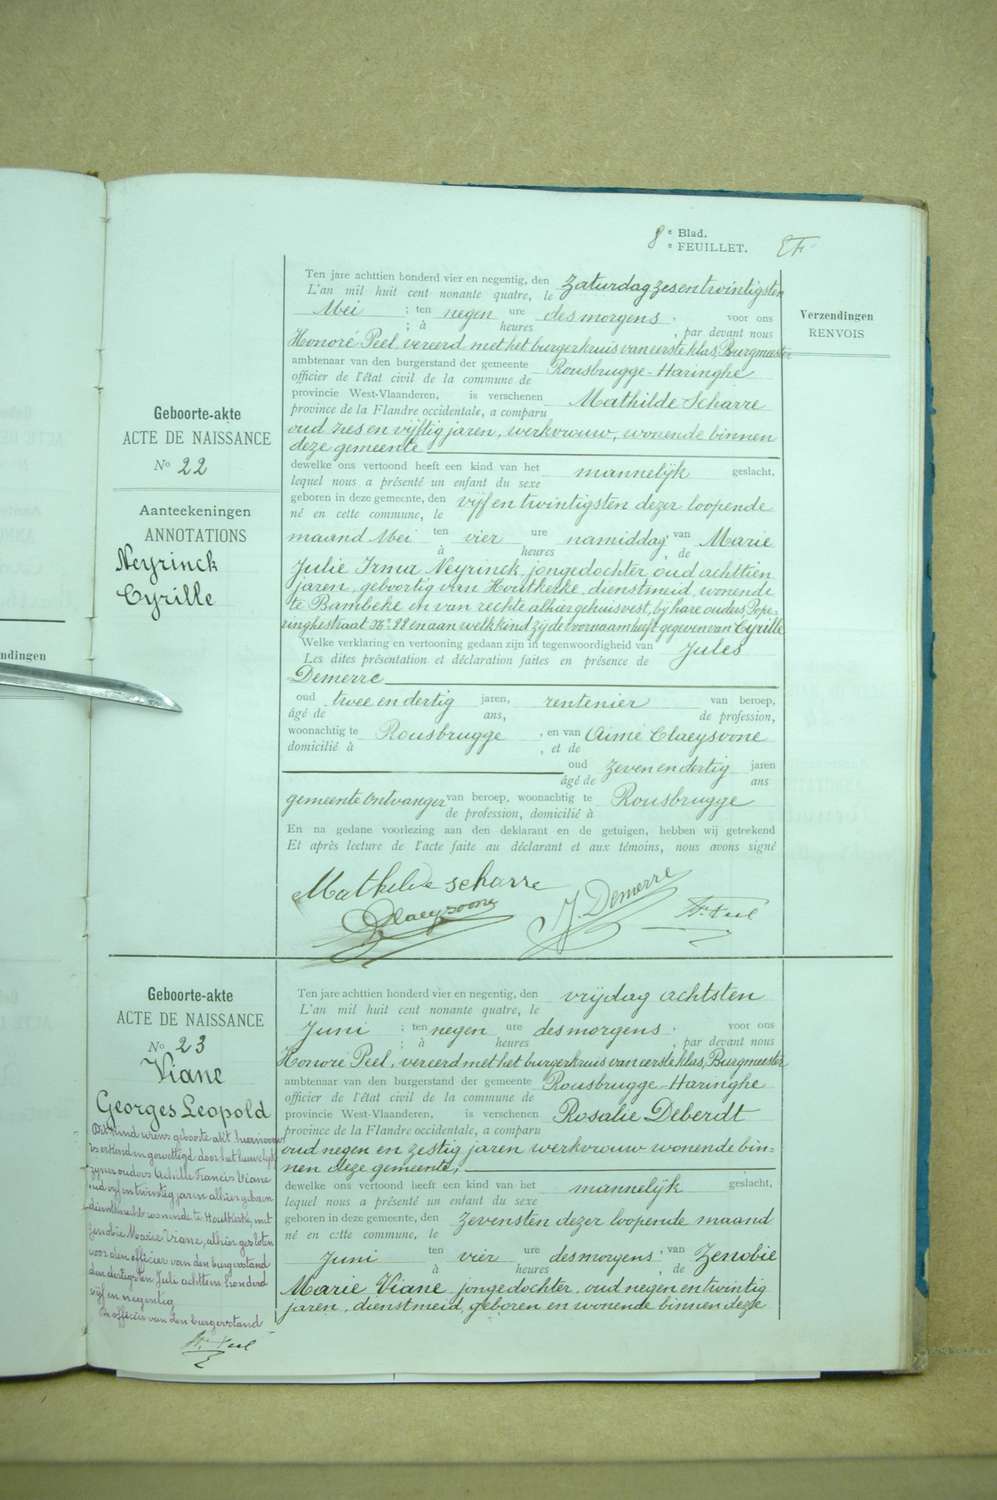 8e Blad.
e FEUILLET.
Verzendingen
RENVOIS
Geboorte-akte
ACTE DE NAISSANCE
No 22
Aanteekeningen
ANNOTATIONS
Neyrinck
Cyrille
Ten jare achttien honderd vier en negentig, den Zaturdag zesentwintigsten
L'an mil huit cent nonante quatre, le
Mei ; ten negen ure des morgens. voor ons
; à heures , par devant nous
Honoré Peel, vereerd met het burgerkruis van eerste klas, Burgmeester
ambtenaar van den burgerstand der gemeente Rousbrugge-Haringhe
officier de l'état civil de la commune de
provincie West-Vlaanderen, is verschenen Mathilde Scharre
province de la Flandre occidentale, a comparu
oud zes en vijftig jaren, werkvrouw, wonende binnen
deze gemeente
dewelke ons vertoond heeft een kind van het mannelijk geslacht,
lequel nous a présenté un enfant du sexe
geboren in deze gemeente, den vijf en twintigsten dezer loopende
né en cette commune, le
maand Mei ten vier ure namiddag van Marie
à heures , de
Julie Irma Neyrinck, jongedochter, oud achttien
jaren, geboortig van Houtkerke, dienstmeid, wonende
te Bambeke en van rechte alhier gehuisvest, bij hare ouders, Pope-
ringhestraat No 22 en aan welk kind zij de voornaam heeft gegeven van Cyrille
Welke verklaring en vertooning gedaan zijn in tegenwoordigheid van Jules
Les dites présentation et déclaration faites en présence de
Demerre
oud twee en dertig jaren, rentenier van beroep,
âgé de ans, de profession,
woonachtig te Rousbrugge , en van Aimé Claeysoone
domicilié à , et de
oud zeven en dertig jaren
âgé de ans
gemeente ontvanger van beroep, woonachtig te Rousbrugge
de profession, domicilié à
En na gedane voorlezing aan den deklarant en de getuigen, hebben wij getekend
Et après lecture de l'acte faite au déclarant et aux témoins, nous avons signé
Mathilde scharre
Claeysoone
J. Demerre
Hé Peel
Geboorte-akte
ACTE DE NAISSANCE
No 23
Viane
Georges Leopold
Dit kind wiens geboorte akt hiernevens
is erkend en gewettigd door het huwelijk
zijner ouders Achille Francis Viane
oud vijf en twintig jaren alhier geboren
dienstknecht wonende te Houtkerke, met
Zenobie Marie Viane, alhier gesloten
voor den officier van den burgerstand
den dertigsten Juli achttien honderd
vijf en negentig
De officier van den burgerstand
Hé Peel
Ten jare achttien honderd vier en negentig, den vrijdag achtsten
L'an mil huit cent nonante quatre, le
Juni ; ten negen ure des morgens. voor ons
; à heures , par devant nous
Honoré Peel, vereerd met het burgerkruis van eerste klas, Burgmeester
ambtenaar van den burgerstand der gemeente Rousbrugge-Haringhe
officier de l'état civil de la commune de
provincie West-Vlaanderen, is verschenen Rosalie Deberdt
province de la Flandre occidentale, a comparu
oud negen en zestig jaren werkvrouw wonende bin-
nen deze gemeente,
dewelke ons vertoond heeft een kind van het mannelijk geslacht,
lequel nous a présenté un enfant du sexe
geboren in deze gemeente, den zevensten dezer loopende maand
né en cette commune, le
Juni ten vier ure des morgens , van Zenobie
à heures , de
Marie Viane jongedochter, oud negen en twintig
jaren, dienstmeid, geboren en wonende binnen deze